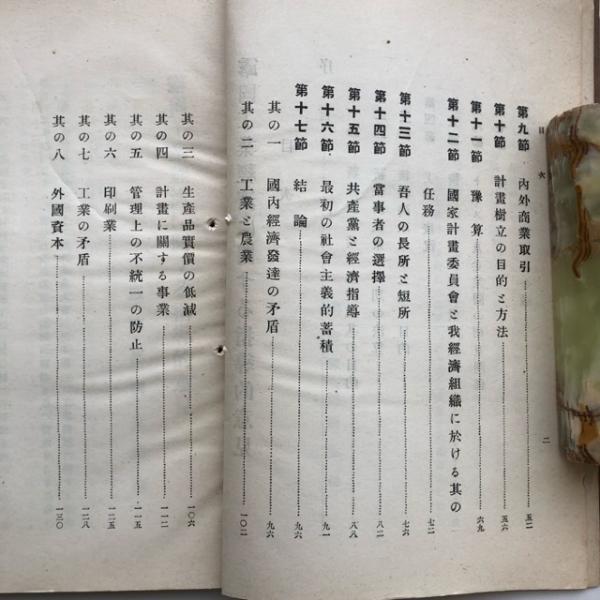 目次
二
第九節 內外商業取引……五二
第十節 計畫樹立の目的と方法……五六
第十一節 豫算……六九
第十二節 國家計畫委員會と我經濟組織に於ける其の
任務……七二
第十三節 吾人の長所と短所……七六
第十四節 當事者の選擇……八二
第十五節 共產黨と經濟指導……八八
第十六節 最初の社會主義的蓄積……九一
第十七節 結論……九六
其の一 國內經濟發達の矛盾……九六
其の二 工業と農業……一〇二
其の三 生產品實價の低減……一〇六
其の四 計畫に關する事業……一一二
其の五 管理上の不統一の防止……一一五
其の六 印刷業……一二五
其の七 工業の矛盾……一二八
其の八 外國資本……一三〇